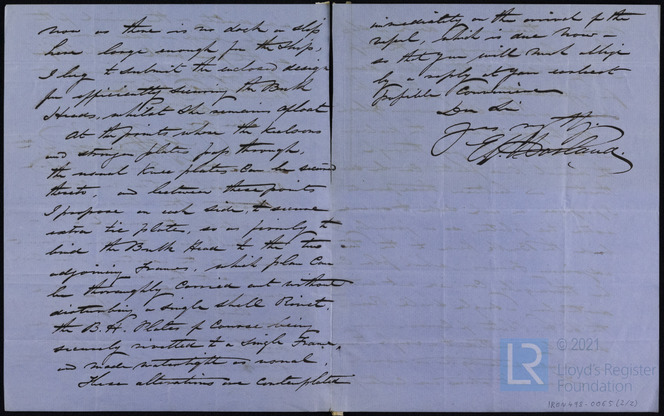 now as there is no dock or slip
here large enough for the ships,
I beg to submit the enclosed design
for efficiently securing the Bulk
Heads, whilst she remains afloat
At the points where the keelsons
and stronger plates pass through,
the usual knee plates can be secured
thereto, and between these points
I propose on each side, to secure
extra tie plates, so as firmly to
bind the Bulk Head to the two
adjoining Frames, which plan can
be thoroughly carried out without
disturbing a single shell Rivet,
the B.H. Plates of Course being
securely rivetted to a single Frame,
and made watertight as usual.
These alterations are contemplated
immediately on the arrival of the
vessel, which is due now –
so that you will much oblige
by a reply at your earliest
possible Convenience
Dear Sir
Yours
© 2021
LR
Lloyd's Register
Foundation
IRON698-0085(2/2)